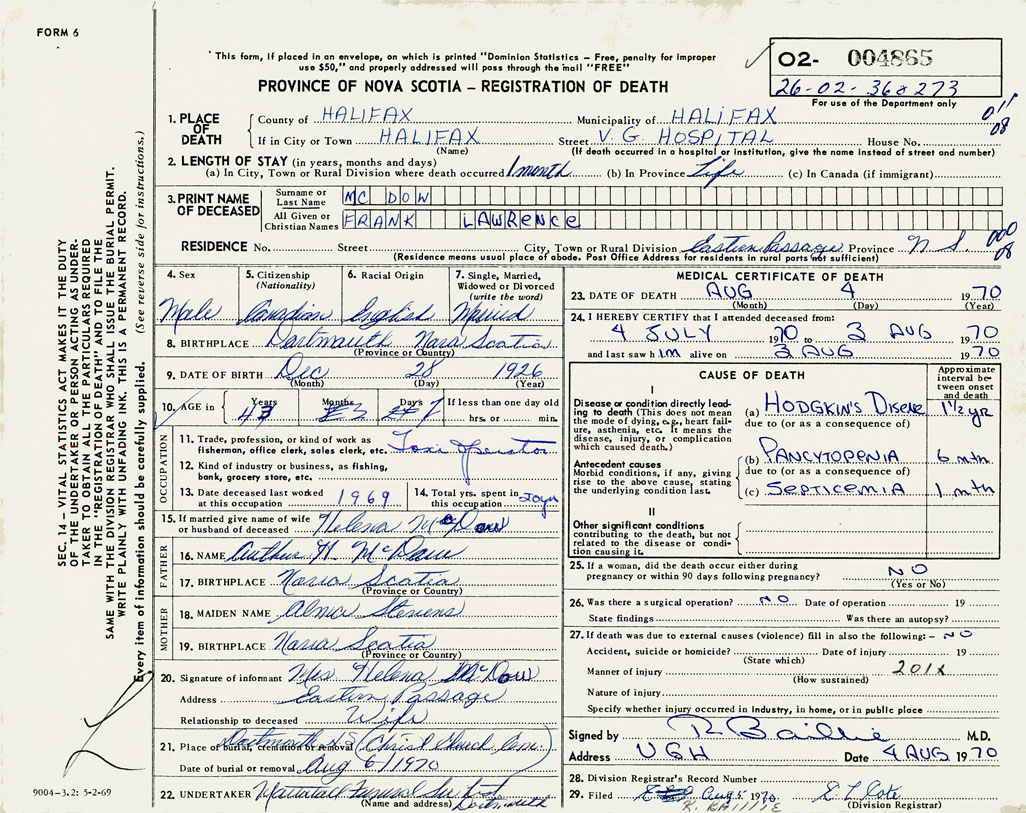 FORM 6
This form, if placed in an envelope, on which is printed "Dominion Statistics – Free, penalty for improper
use $50," and properly addressed will pass through the mail "FREE"
PROVINCE OF NOVA SCOTIA – REGISTRATION OF DEATH
O2- 004865
26-02-368273
For use of the Department only
011
08
1. PLACE OF DEATH
County of HALIFAX Municipality of HALIFAX
If in City or Town HALIFAX Street V. G. HOSPITAL House No.
(Name) (If death occurred in a hospital or institution, give the name instead of street and number)
2. LENGTH OF STAY (in years, months and days)
(a) In City, Town or Rural Division where death occurred 1 month (b) In Province Life (c) In Canada (if immigrant)
3. PRINT NAME OF DECEASED
Surname or Last Name MC DOW
All Given or Christian Names FRANK LAWRENCE
RESIDENCE No. Street City, Town or Rural Division Eastern Passage Province N. S.
000
08
(Residence means usual place of abode. Post Office Address for residents in rural parts not sufficient)
4. Sex 5. Citizenship (Nationality) 6. Racial Origin 7. Single, Married, Widowed or Divorced (write the word)
Male Canadian English Married
8. BIRTHPLACE Dartmouth Nova Scotia
(Province or Country)
9. DATE OF BIRTH Dec 28 1926
(Month) (Day) (Year)
10. AGE in Years Months Days If less than one day old
43 7 hrs. or min.
OCCUPATION
11. Trade, profession, or kind of work as
fisherman, office clerk, sales clerk, etc. Taxi Operator
12. Kind of industry or business, as fishing,
bank, grocery store, etc.
13. Date deceased last worked at this occupation 1969
14. Total yrs. spent in this occupation 20 yrs
15. If married give name of wife
or husband of deceased Helena McDow
FATHER
16. NAME Arthur H. McDow
17. BIRTHPLACE Nova Scotia
(Province or Country)
MOTHER
18. MAIDEN NAME Alma Stevens
19. BIRTHPLACE Nova Scotia
(Province or Country)
20. Signature of informant Mrs Helena McDow
Address Eastern Passage
Relationship to deceased Wife
21. Place of burial, cremation or removal Dartmouth N.S. (Christ Church Cem.)
Date of burial or removal Aug 6/1970
22. UNDERTAKER Mattatall Funeral Ser Ltd
(Name and address) Dartmouth
MEDICAL CERTIFICATE OF DEATH
23. DATE OF DEATH AUG 4 1970
(Month) (Day) (Year)
24. I HEREBY CERTIFY that I attended deceased from:
4 JULY 1970 to 3 AUG 1970
and last saw him alive on 3 AUG 1970
CAUSE OF DEATH
Approximate interval between onset and death
I
Disease or condition directly leading to death (This does not mean the mode of dying, e.g., heart failure, asthenia, etc. It means the disease, injury, or complication which caused death.)
(a) HODGKIN'S Disease 1½ yr
due to (or as a consequence of)
Antecedent causes
Morbid conditions, if any, giving rise to the above cause, stating the underlying condition last.
(b) PANCYTOPENIA 6 mth
due to (or as a consequence of)
(c) SEPTICEMIA 1 mth
II
Other significant conditions
contributing to the death, but not
related to the disease or condition causing it.
25. If a woman, did the death occur either during
pregnancy or within 90 days following pregnancy? NO
(Yes or No)
26. Was there a surgical operation? NO Date of operation 19
State findings Was there an autopsy?
27. If death was due to external causes (violence) fill in also the following:– NO
Accident, suicide or homicide? Date of injury 19
(State which)
Manner of injury 201X
(How sustained)
Nature of injury
Specify whether injury occurred in industry, in home, or in public place
Signed by R Baillie M.D.
Address VGH Date 4 AUG 1970
28. Division Registrar's Record Number
29. Filed Aug 5 1970 E L Cote
R. BAILLIE (Division Registrar)
SEC. 14 – VITAL STATISTICS ACT MAKES IT THE DUTY
OF THE UNDERTAKER OR PERSON ACTING AS UNDER-
TAKER TO OBTAIN ALL THE PARTICULARS REQUIRED
IN THE "REGISTRATION OF DEATH" AND TO FILE THE
SAME WITH THE DIVISION REGISTRAR WHO SHALL ISSUE THE BURIAL PERMIT.
WRITE PLAINLY WITH UNFADING INK. THIS IS A PERMANENT RECORD.
Every item of information should be carefully supplied. (See reverse side for instructions.)
9004-3.2: 5-2-69